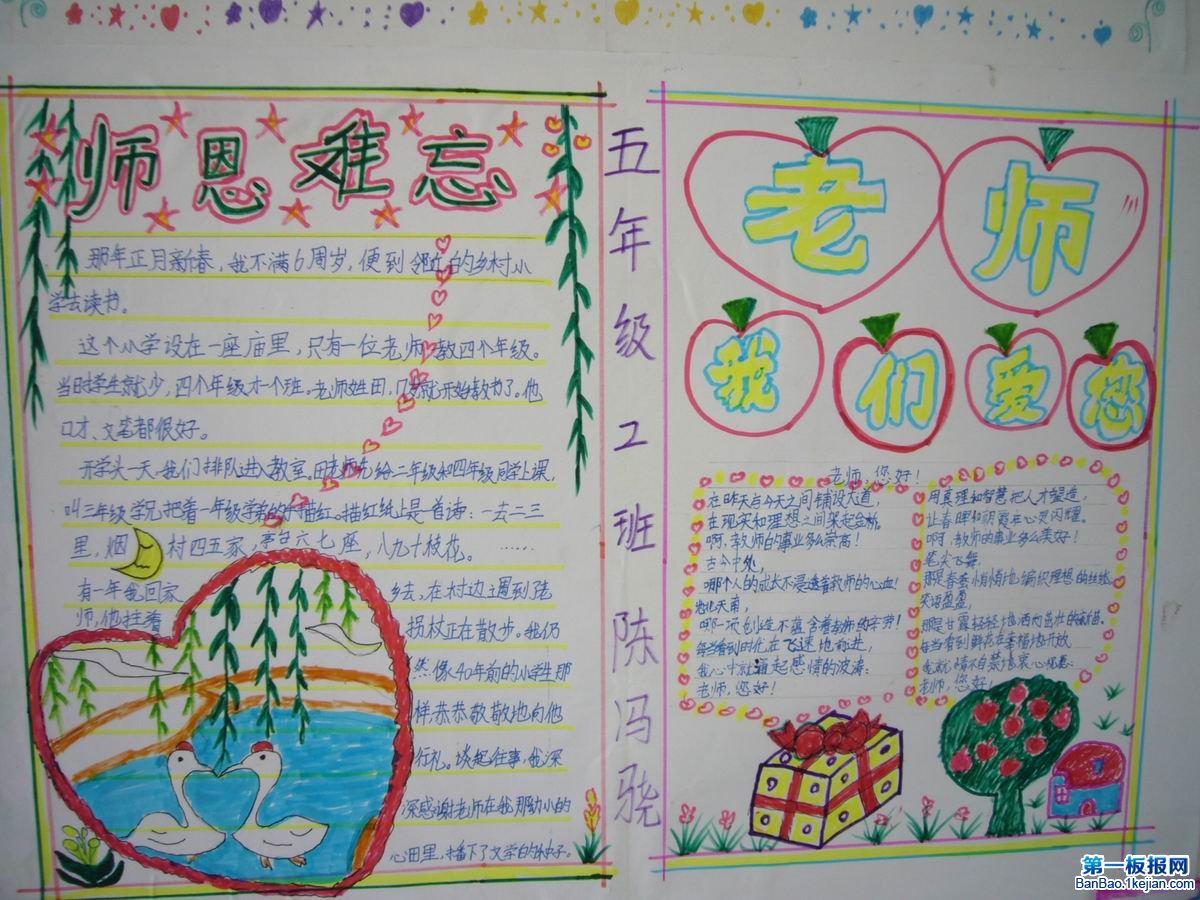 师恩难忘
那年正月新春，我不满6周岁，便到邻近的乡村小
学去读书。
这个小学设在一座庙里，只有一位老师教四个年级。
当时学生就少，四个年级才一个班。老师姓田，开始教书了。他
口才、文笔都很好。
开学头一天，我们排队进入教室，田老师先给二年级和四年级同学上课，
叫三年级学兄把着一年级学弟的手描红。描红纸上是一首诗：一去二三
里，烟村四五家，亭台六七座，八九十枝花。……
有一年我回家乡去，在村边遇到老
师，他拄着拐杖正在散步。我仍
然像40年前的小学生那
样，恭恭敬敬地向他
行礼。谈起往事，我深
深感谢老师在我那幼小的
心田里，播下了文学的种子。
五年级工班 陈冯骁
老师
我们爱您
老师，您好！
在昨天与今天之间铺设大道，
在现实和理想之间架起金桥。
啊，教师的事业多么崇高！
古今中外，
哪个人的成长不浸透着教师的心血！
天南，
哪一项创造不蕴含着教师的辛劳！
每当看到时代在飞速地前进，
我心中就涌起感情的波涛：
老师，您好！
用真理和智慧把人才塑造，
让春晖和朝霞在心灵闪耀。
啊，教师的事业多么美好！
笔尖飞舞，
那是春蚕悄悄地编织理想的丝绦
笑语盈盈，
那是甘露轻轻地洒向茁壮的新苗。
每当看到鲜花在幸福地开放
我就情不自禁地衷心祝愿：
老师，您好！
第一板报网
BanBao.1kejian.com